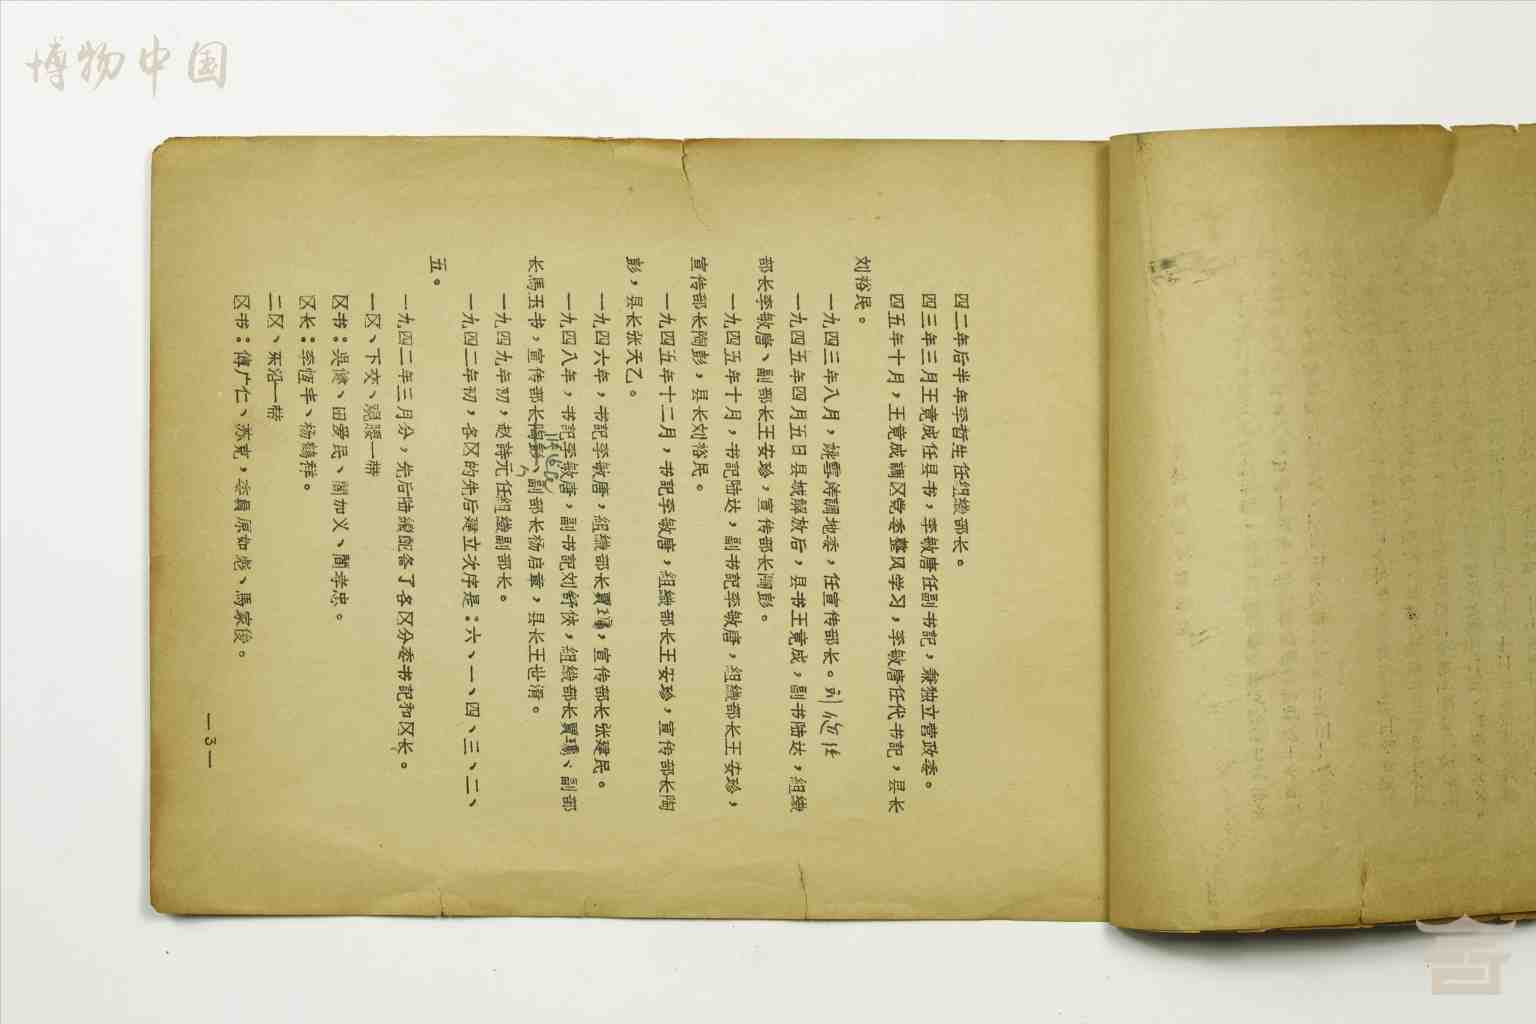 博物中国
四二年后半年李哲生任组織部长。
四三年三月王竟成任县书，李敏唐任副书記，兼独立营政委。
四五年十月，王竟成調区党委整风学习，李敏唐任代书記，县长
刘裕民。
一九四三年八月，姚雪涛調地委，任宣传部长。
一九四五年四月五日县城解放后，县书王竟成，副书陆达，組織
部长李敏唐、副部长王安珍，宣传部长陶彭。
一九四五年十月，书記陆达，副书記李敏唐，組織部长王安珍，
宣传部长陶彭，县长刘裕民。
一九四五年十二月，书記李敏唐，組織部长王安珍，宣传部长陶
彭，县长张天乙。
一九四六年，书記李敏唐，組織部长賈瑞，宣传部长张建民。
一九四八年，书記李敏唐，副书記刘舒俠，組織部长賈瑞、副部
长馬玉书，宣传部长陶彭、副部长杨启章，县长王世淯。
一九四九年初，赵詩元任組織副部长。
一九四二年初，各区的先后建立次序是：六、一、四、三、二、
五。
一九四二年三月分，先后陆續配备了各区分委书記和区长。
一区、下交、观腰一带
区书：吳健、田爱民、閻加义、閻孝忠。
区长：李恆丰、杨鶴祥。
二区、东沿一带
区书：傅广仁、苏克，委員原如彪、馬家俊。
—3—